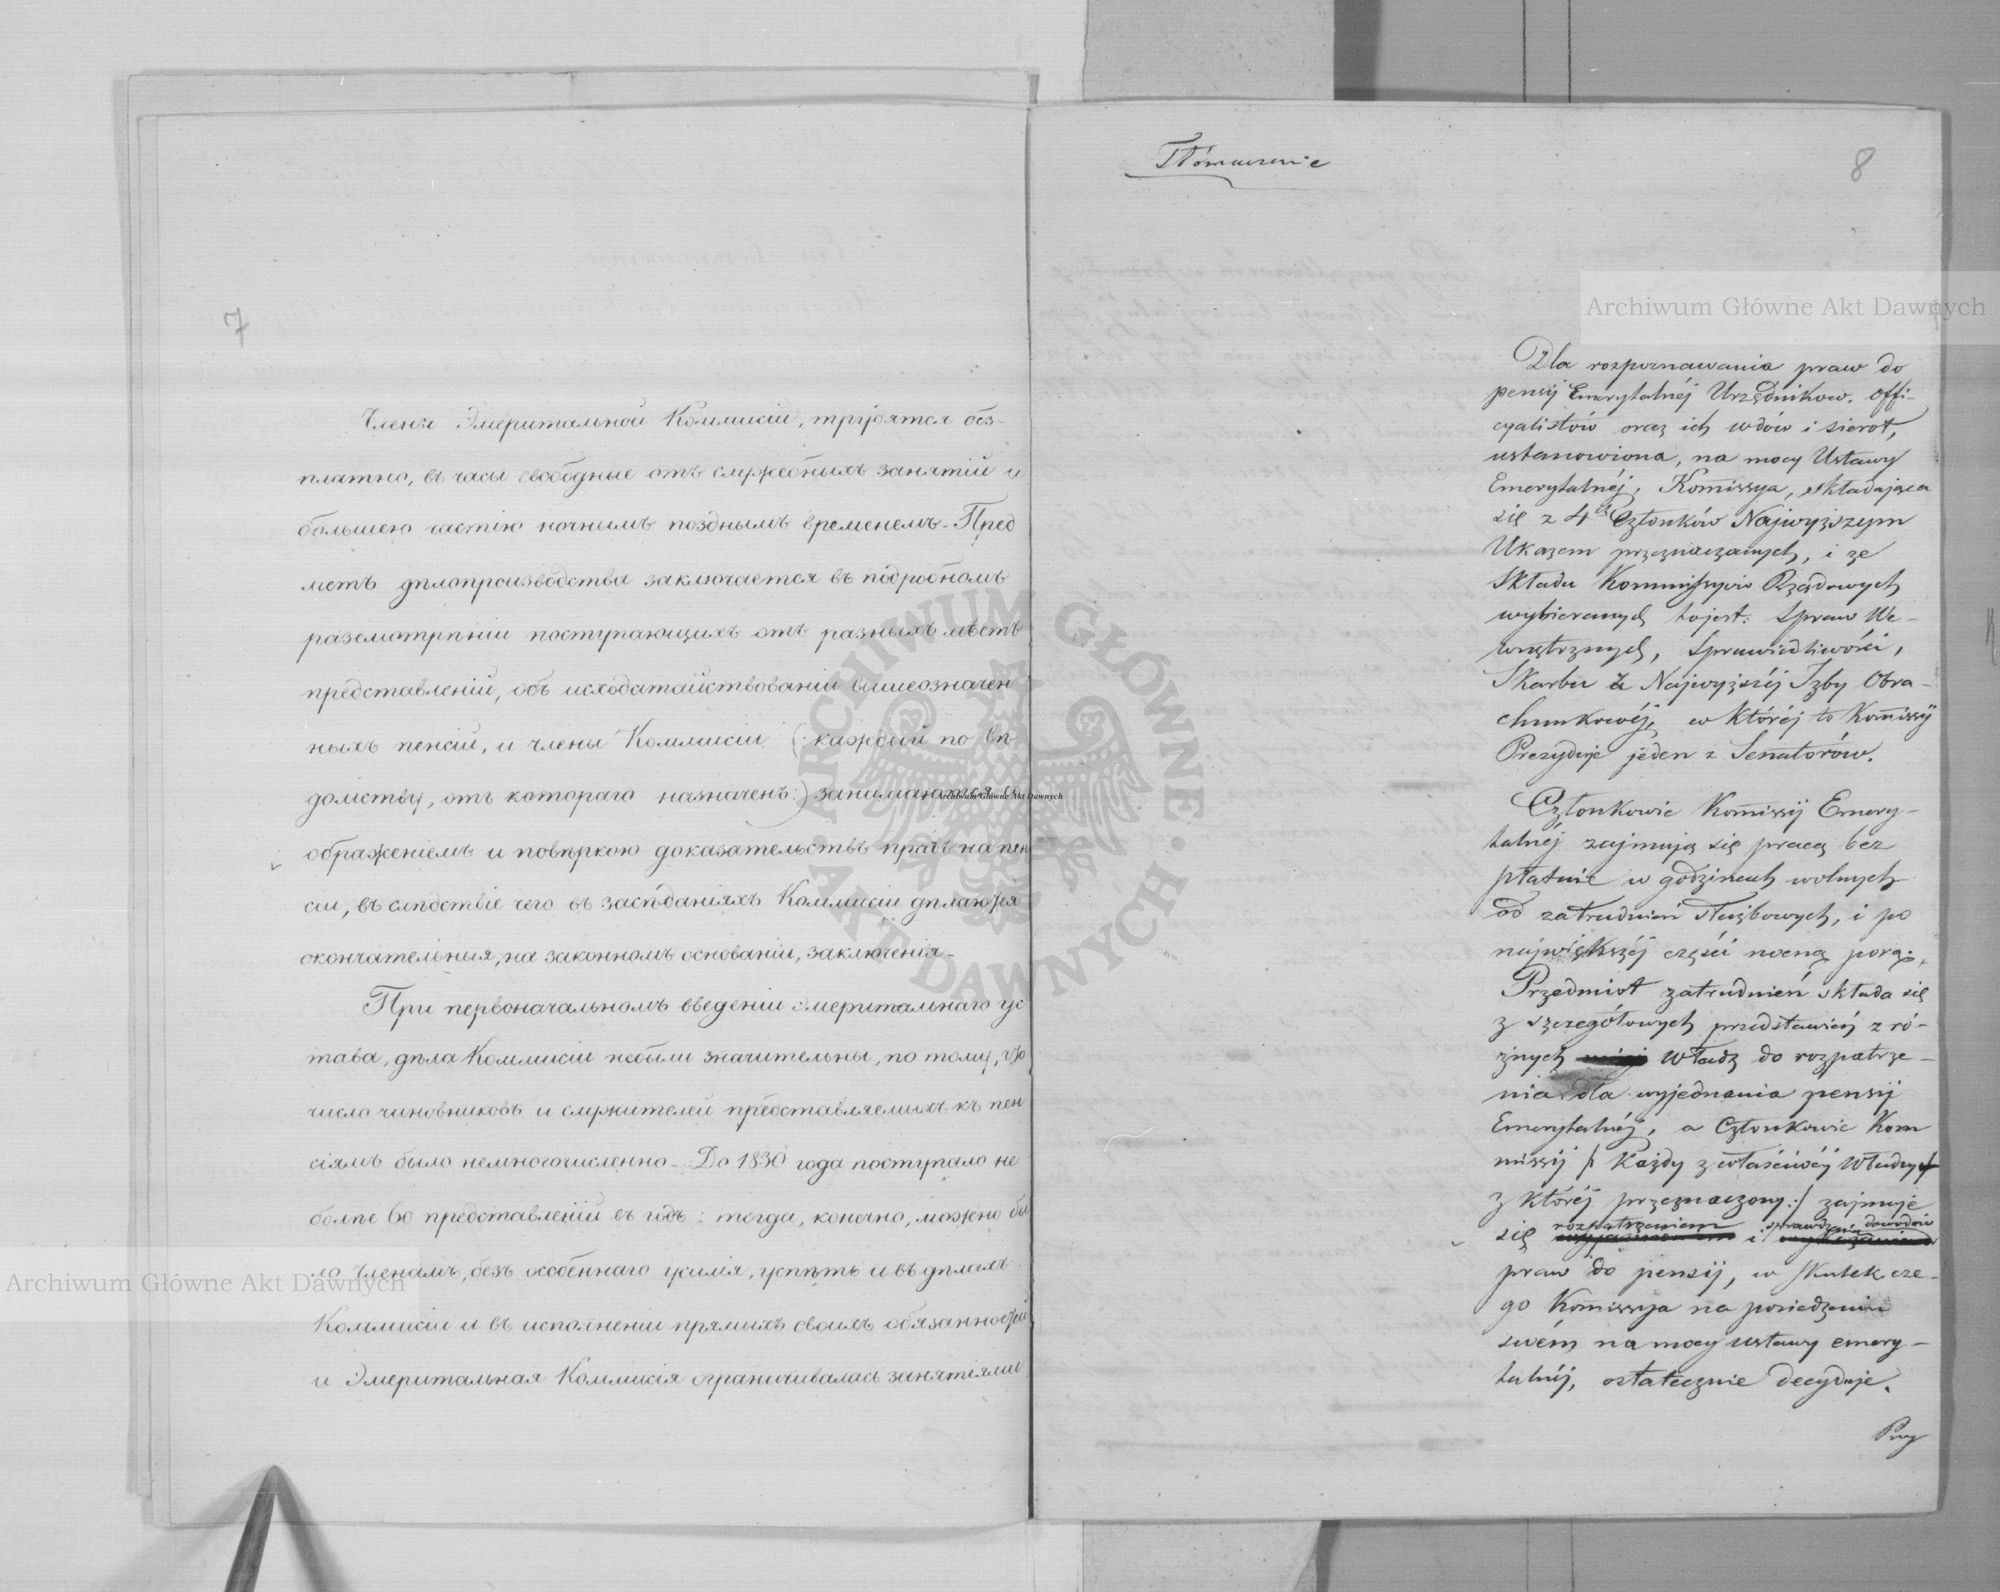 7
Члены Эмеритальной Коммисіи, трудятся без-
платно, въ часы свободные отъ служебныхъ занятій и
большею частію ночнымъ позднымъ временемъ. Пред
метъ дѣлопроизводства заключается въ подробномъ
разсмотрѣніи поступающихъ отъ разныхъ мѣстъ
представленій, объ исходатайствованіи вышеозначен
ныхъ пенсій, и члены Коммисіи (: каждый по вѣ
домству, отъ котораго назначенъ:) занимаются
ображеніемъ и повѣркою доказательствъ правъ на пен
сіи, въ слѣдствіе чего въ засѣданіяхъ Коммисіи дѣлаются
окончательныя, на законномъ основаніи, заключенія.
При первоначальномъ введеніи Эмеритальнаго ус
тава, дѣла Коммисіи небыли значительны, по тому, что
число чиновниковъ и служителей представляемыхъ къ пен
сіямъ было немногочисленно. До 1830 года поступало не
болѣе 60 представленій въ годъ: тогда, конечно, можно бы
ло Членамъ, безъ особеннаго усилія, успѣть и въ дѣлахъ
Коммисіи и въ исполненіи прямыхъ своихъ обязанностей
и Эмеритальная Коммисія ограничивалась занятіями
Tłómaczenie
8
Dla rozpoznawania praw do
pensij Emerytalnéj Urzędnikow, offi-
cyalistów oraz ich wdów i sierot,
ustanowiona, na mocy Ustawy
Emerytalnéj, Komissya, składająca
się z 4ch Członków Najwyższym
Ukazem przeznaczanych, i ze
składu Kommissyów Rządowych
wybieranych tojest: Spraw We-
wnętrznych, Sprawiedliwości,
Skarbu i Najwyższéj Izby Obra-
chunkowéj, w któréj to Komissij
Prezyduje jeden z Senatorów.
Członkowie Komissij Emery-
talnéj zajmują się pracą bez
płatnie w godzinach wolnych
od zatrudnień służbowych, i po
największéj części nocną porą.
Przedmiot zatrudnień składa się
z szczegółowych przedstawień z ró-
żnych Władz do rozpatrze-
nia dla wyjednania pensij
Emerytalnéj, a Członkowie Kom
missij /: Każdy z właściwéj Władzy
z któréj przeznaczony :/ zajmuje
się rozpatrzeniem i sprawdzeniem dowodów
praw do pensij, w skutek cze-
go Komissya na posiedzeniu
swém na mocy ustawy emery-
talnéj, ostatecznie decyduje.
Przy
Archiwum Główne Akt Dawnych
Archiwum Główne Akt Dawnych
Archiwum Główne Akt Dawnych
ARCHIWUM GŁÓWNE AKT DAWNYCH